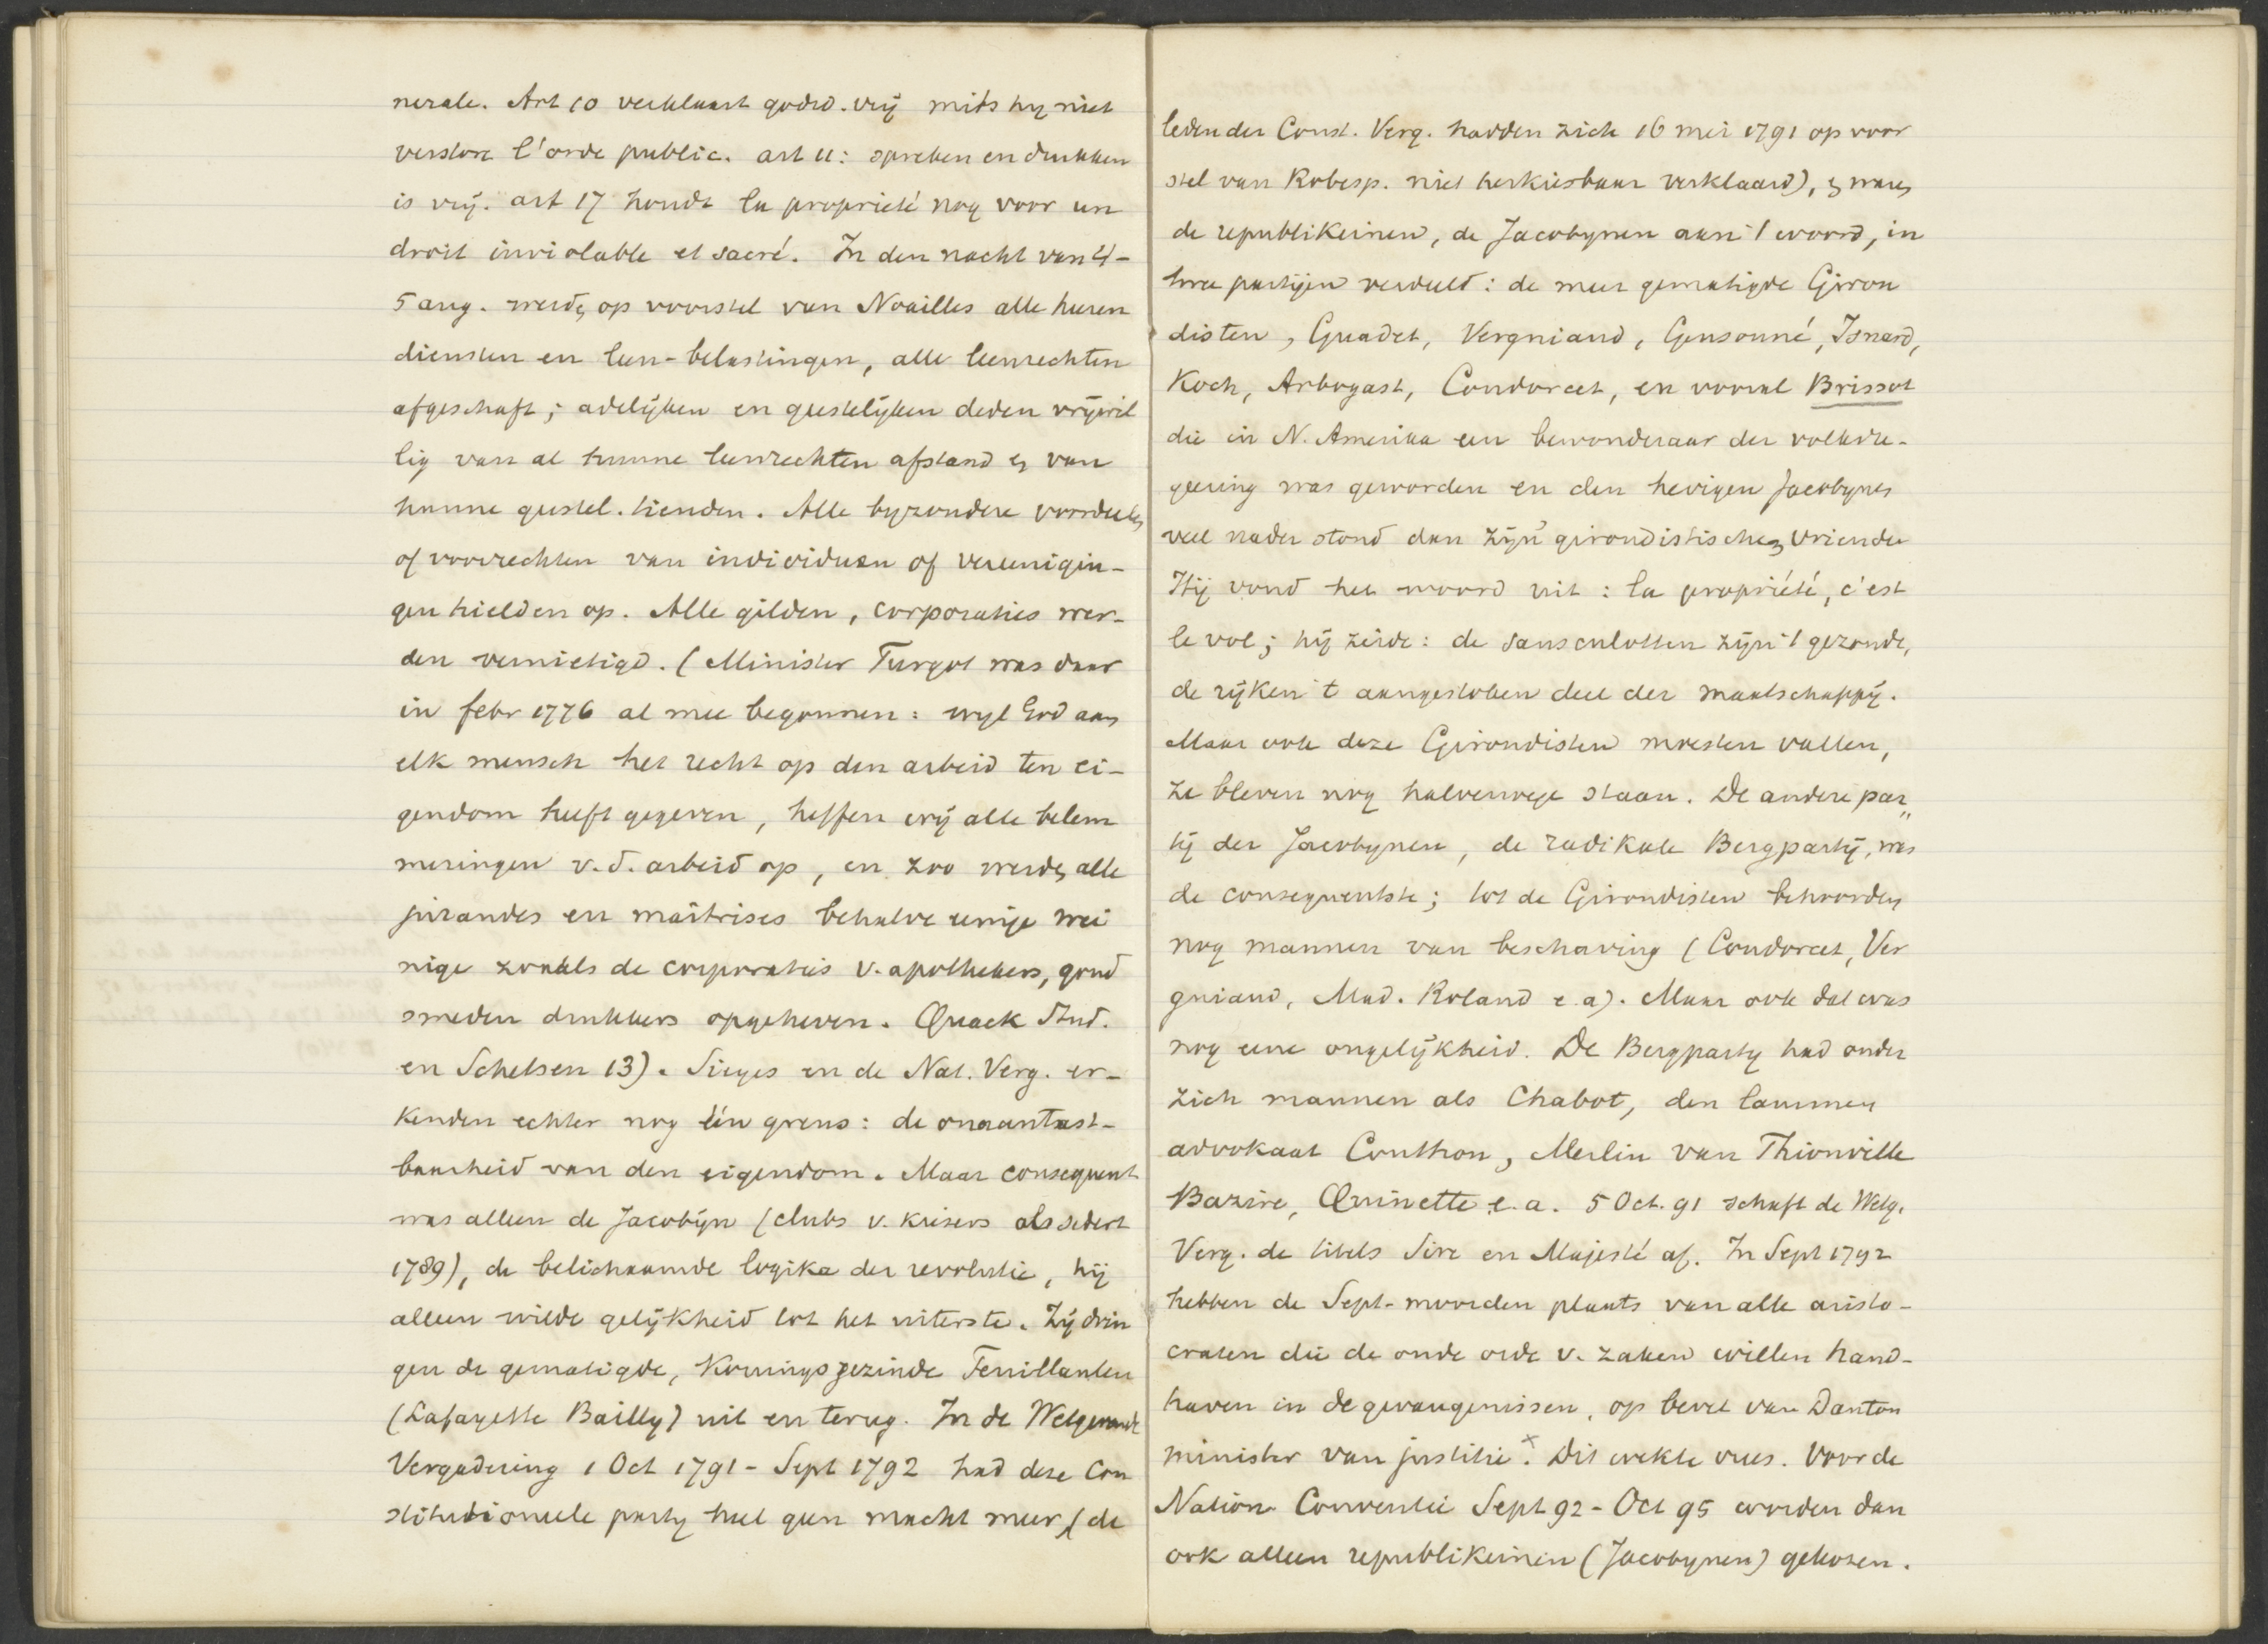 nerale. Art 10 verklaart godsd. vrij mits hy niet
verstore l'orde public. art 11: spreken en drukken
is vrij. art 17 houdt la proprieté nog voor un
droit inviolable et sacré. In den nacht van 4-
5 aug. werdn op voorstel van Noailles alle heeren
diensten en leen-belastingen, alle leenrechten
afgeschaft; adelijken en geestelijken deden vrijwil
lig van al hunne leenrechten afstand en van
hunne geestel. tienden. Alle byzondere voordeelen
of voorrechten van individuen of vereenigin-
gen hielden op. Alle gilden, corporaties wer-
den vernietigd. (Minister Turgot was daar
in febr 1776 al mee begonnen: wyl God aan
elk mensch het recht op den arbeid ten ei-
gendom heeft gegeven, heffen wij alle belem
meringen v.d. arbeid op, en zoo werdn alle
jurandes en maîtrises behalve eenige wei
nige zooals de corporaties v. apothekers, goud
smeden drukkers opgeheven. Quack Stud.
en Schetsen 13). Sieyes en de Nat. Verg. er-
kenden echter nog één grens: de onaantast-
baarheid van den eigendom. Maar consequent
was alleen de Jacobijn (clubs v. kiezers als sedert
1789), de belichaamde logika der revolutie, hij
alleen wilde gelijkheid tot het uiterste. Zij drin
gen de gematigde, Koningsgezinde Feuillanten
(Lafayette Bailly) uit en terug. In de Wetgevende
Vergadering 1 Oct 1791 - Sept 1792 had deze Con
stitutioneele party heel geen macht meer (de
leden der Const. Verg. hadden zich 16 mei 1791 op voor
stel van Robesp. niet herkiesbaar verklaard), en waren
de republikeinen, de Jacobynen aan 't woord, in
twee partijen verdeeld: de meer gematigde Giron
disten, Guadet, Vergniaud, Gensonné, Isnard,
Koch, Arbogast, Condorcet, en vooral Brissot
die in N. Amerika een bewonderaar der volksre-
geering was geworden en den hevigen Jacobynen
veel nader stond dan zijn girondistischen vrienden
Hij vond het woord uit: la propriété, c'est
le vol; hij zeide: de sansculotten zijn 't gezonde,
de rijken 't aangestoken deel der maatschappij.
Maar ook deze Girondisten moesten vallen,
ze bleven nog halverwege staan. De andere par„
tij der Jacobynen, de radikale Bergpartij, was
de consequentste; tot de Girondisten behoorden
nog mannen van beschaving (Condorcet, Ver
gniaud, Mad. Roland e.a). Maar ook dat was
nog eene ongelijkheid. De Bergparty had onder
zich mannen als Chabot, den lammen
advokaat Couthon, Merlin van Thionville
Bazire, Quinette e.a. 5 Oct. 91 schaft de Wetg.
Verg. de titels Sire en Majesté af. In Sept 1792
hebben de Sept-moorden plaats van alle aristo-
craten die de oude orde v. zaken willen hand-
haven in de gevangenissen, op bevel van Danton
minister van justitie x. Dit wekte vrees. Voor de
Nation. Conventie Sept 92 - Oct 95 worden dan
ook alleen republikeinen (Jacobynen) gekozen.